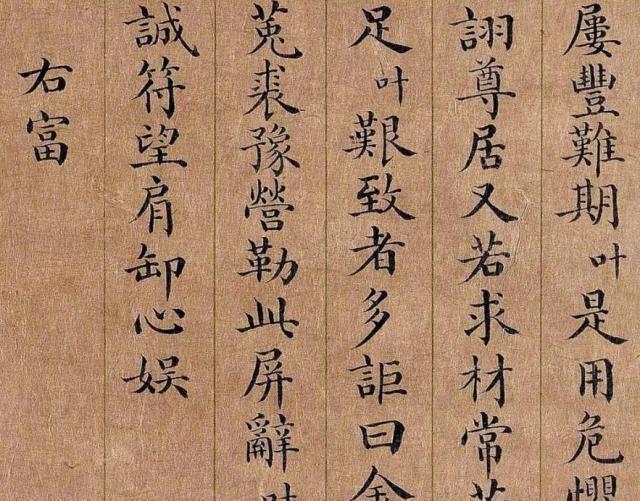 屢豐難期叶是用危懼
詡尊居又若求材常若
足叶艱致者多詎曰金
菟裘豫營勒此屏辭
誠符望肩卸心娱
右富